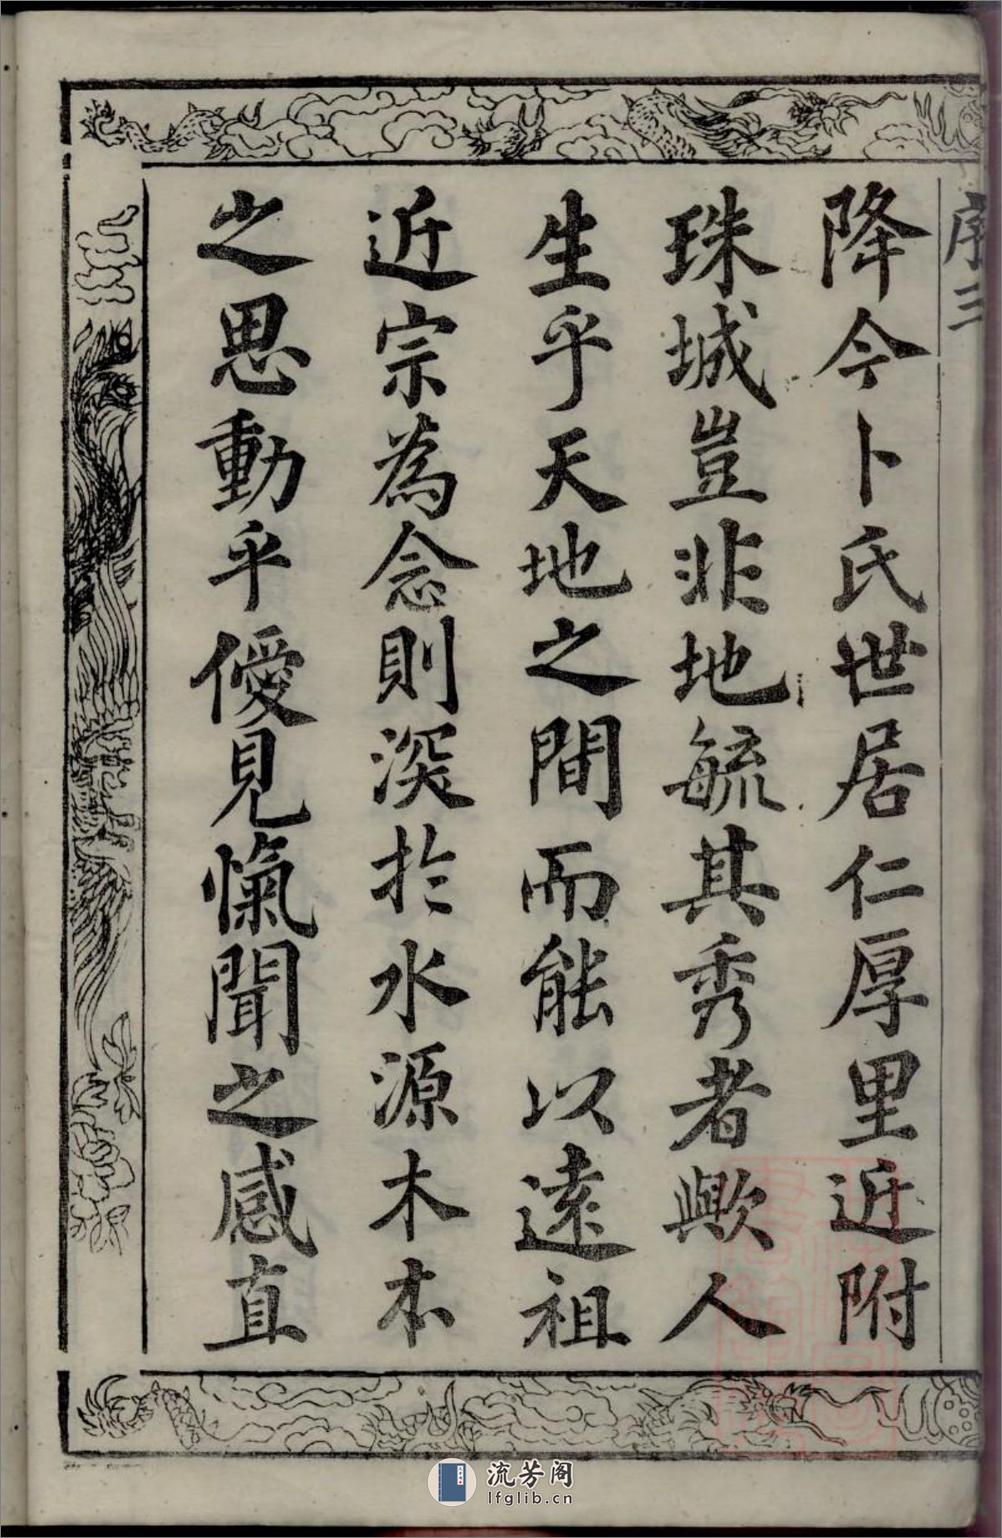 序三
降今卜氏世居仁厚里近附
珠城豈非地毓其秀者歟人
生乎天地之間而能以遠祖
近宗為念則深於水源木本
之思動乎僾見愾聞之感直
流芳阁
lfglib.cn